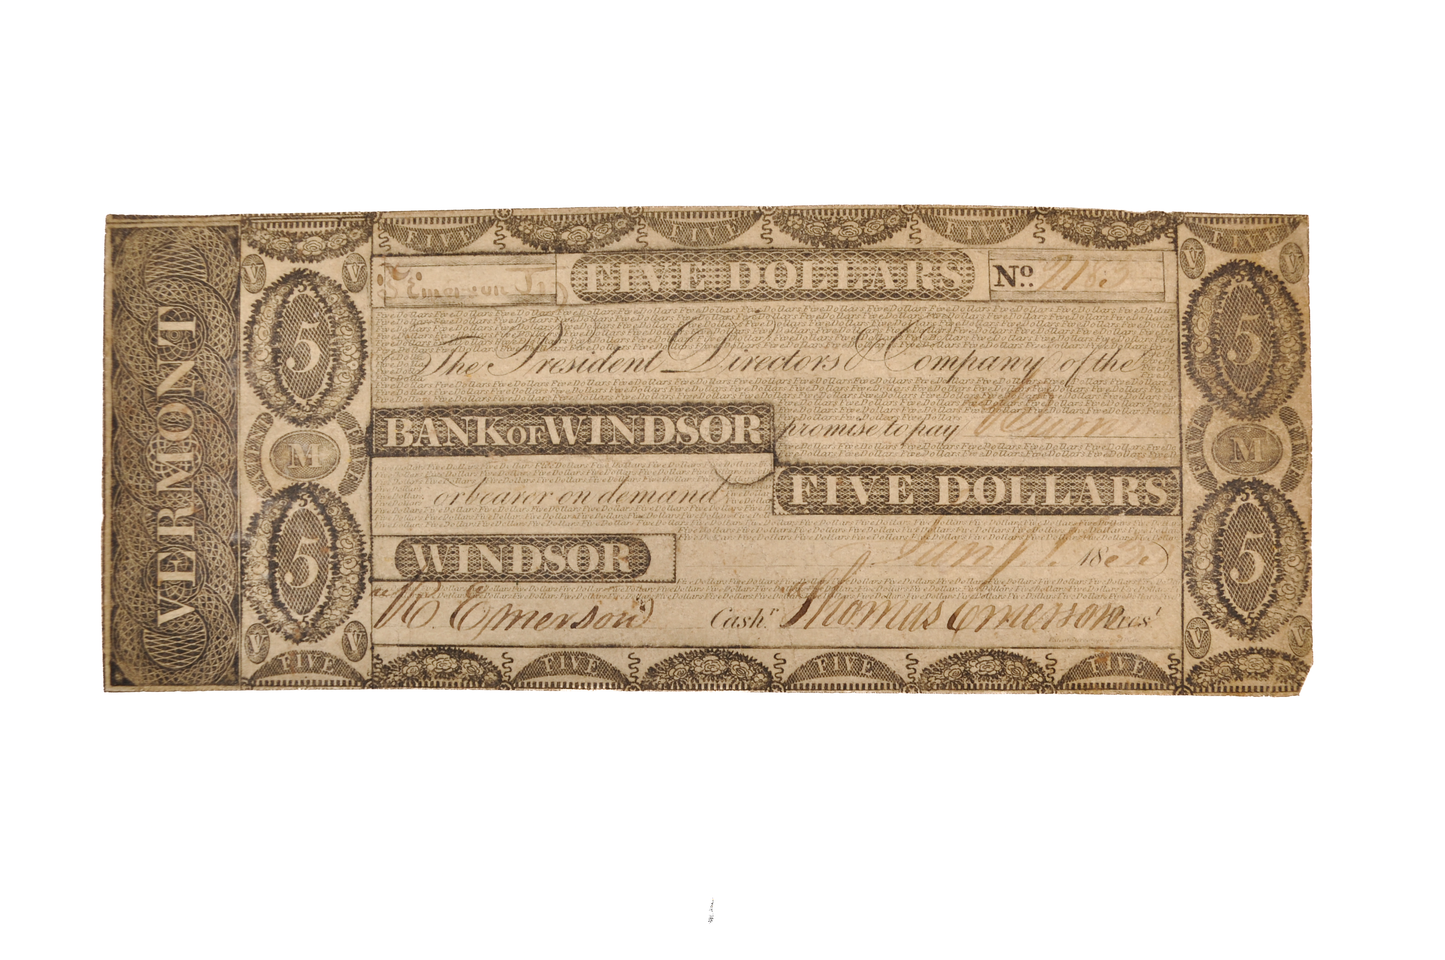 VERMONT
FIVE FIVE FIVE FIVE
V V V V
T. Emerson FIVE DOLLARS No. 2183
5 5
The President Directors & Company of the
BANK OF WINDSOR promise to pay
M M
or bearer on demand FIVE DOLLARS
5 5
WINDSOR Jany. 1. 18
R. Emerson Cashr. Thomas Emerson Prest
V V V V
FIVE FIVE FIVE FIVE